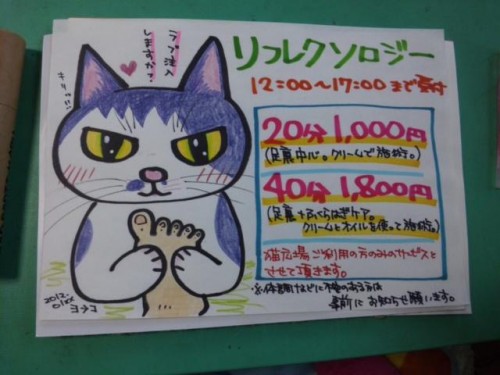 ラブ注入
しますか?
リフレクソロジー
12:00〜17:00まで受付
20分1,000円
(足裏中心。クリームで施術。)
40分1,800円
(足裏+ふくらはぎケア。
クリームとオイルを使って施術。)
猫広場ご利用の方のみのサービスと
させて頂きます。
※体調などに不安のある方は
事前にお知らせ願います。
2012.
ヨネコ